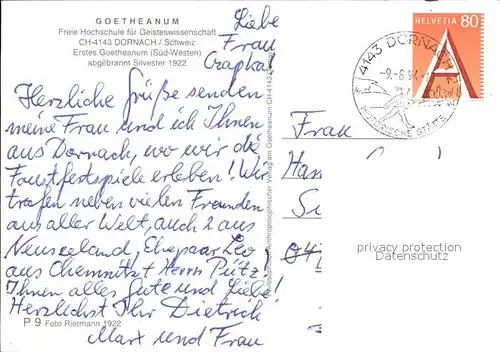 GOETHEANUM
Freie Hochschule für Geisteswissenschaft
CH-4143 DORNACH / Schweiz
Erstes Goetheanum (Süd-Westen)
abgebrannt Silvester 1922
Liebe
Frau
Czapka!
Herzliche Grüße senden
meine Frau und ich Ihnen
aus Dornach, wo wir die
Faustfestspiele erleben! Wir
trafen neben vielen Freunden
aus aller Welt, auch 2 aus
Neuseeland, Ehepaar Leo,
aus Chemnitz Herrn Pütz!
Ihnen alles Gute und Liebe!
Herzlichst Ihr Dietrich
Marx und Frau
P 9 Foto Rietmann 1922
Verlag am Goetheanum CH-4143
HELVETIA 80
A
4143 DORNACH
HISTORISCHE STÄTTE
Frau
Han
privacy protection
Datenschutz